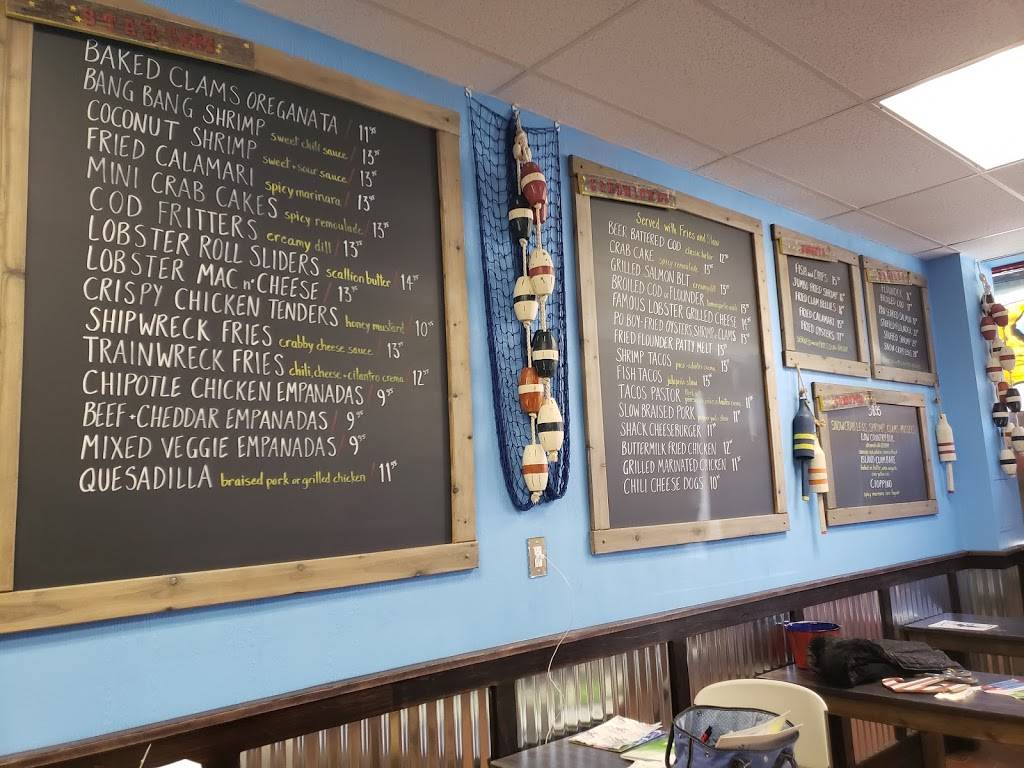 STARTERS
BAKED CLAMS OREGANATA / 11⁹⁵
BANG BANG SHRIMP sweet chili sauce / 13⁹⁵
COCONUT SHRIMP sweet + sour sauce / 13⁹⁵
FRIED CALAMARI spicy marinara / 13⁹⁵
MINI CRAB CAKES spicy remoulade / 13⁹⁵
COD FRITTERS creamy dill / 13⁹⁵
LOBSTER ROLL SLIDERS scallion butter / 14⁹⁵
LOBSTER MAC n' CHEESE / 13⁹⁵
CRISPY CHICKEN TENDERS honey mustard / 10⁹⁵
SHIPWRECK FRIES crabby cheese sauce / 13⁹⁵
TRAINWRECK FRIES chili, cheese + cilantro crema 12⁹⁵
CHIPOTLE CHICKEN EMPANADAS / 9⁹⁵
BEEF + CHEDDAR EMPANADAS / 9⁹⁵
MIXED VEGGIE EMPANADAS / 9⁹⁵
QUESADILLA braised pork or grilled chicken / 11⁹⁵
Served with Fries and Slaw
BEER BATTERED COD
CRAB CAKE spicy remoulade
GRILLED SALMON BLT
BROILED COD or FLOUNDER
FAMOUS LOBSTER GRILLED CHEESE
PO BOY-FRIED OYSTERS, SHRIMP or CLAMS
FRIED FLOUNDER PATTY MELT
SHRIMP TACOS
FISH TACOS jalapeño slaw
TACOS PASTOR
SLOW BRAISED PORK
SHACK CHEESEBURGER
BUTTERMILK FRIED CHICKEN
GRILLED MARINATED CHICKEN
CHILI CHEESE DOGS
FISH and CHIPS
JUMBO FRIED SHRIMP
FRIED CLAM BELLIES
FRIED CALAMARI
FRIED OYSTERS
FLOUNDER
BROILED COD
STUFFED FLOUNDER
STUFFED SHRIMP
SNOW CRAB LEGS
LOW COUNTRY BOIL
ISLAND CLAM BAKE
CIOPPINO